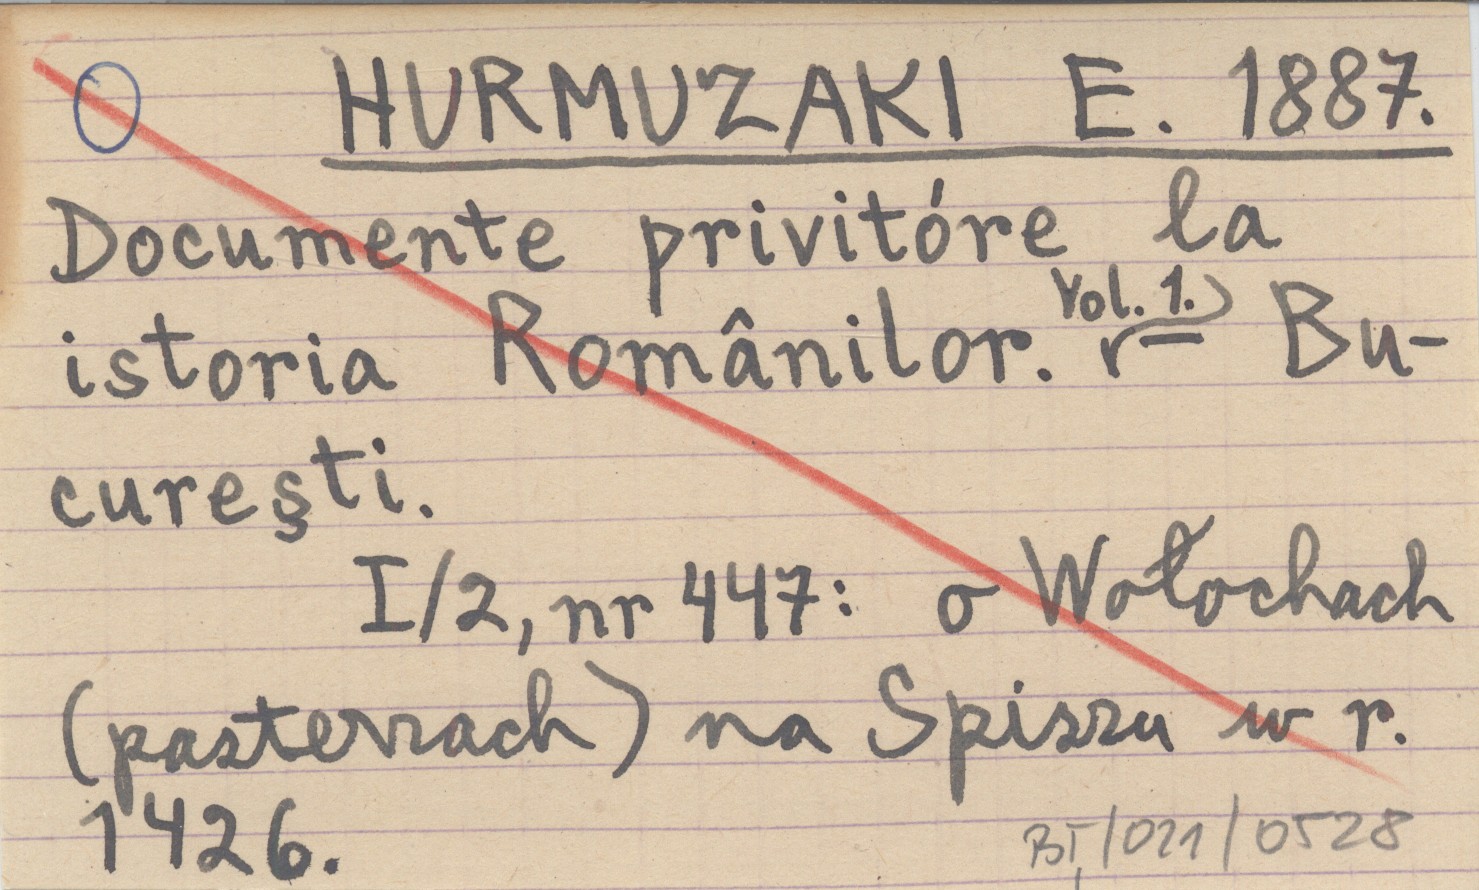 HURMUZAKI E. 1887.
Documente privitóre la
istoria Românilor. Vol. 1. Bu-
cureşti.
I/2, nr 447: o Wołochach
(pasterzach) na Spiszu w r.
1426.
BT/021/0528